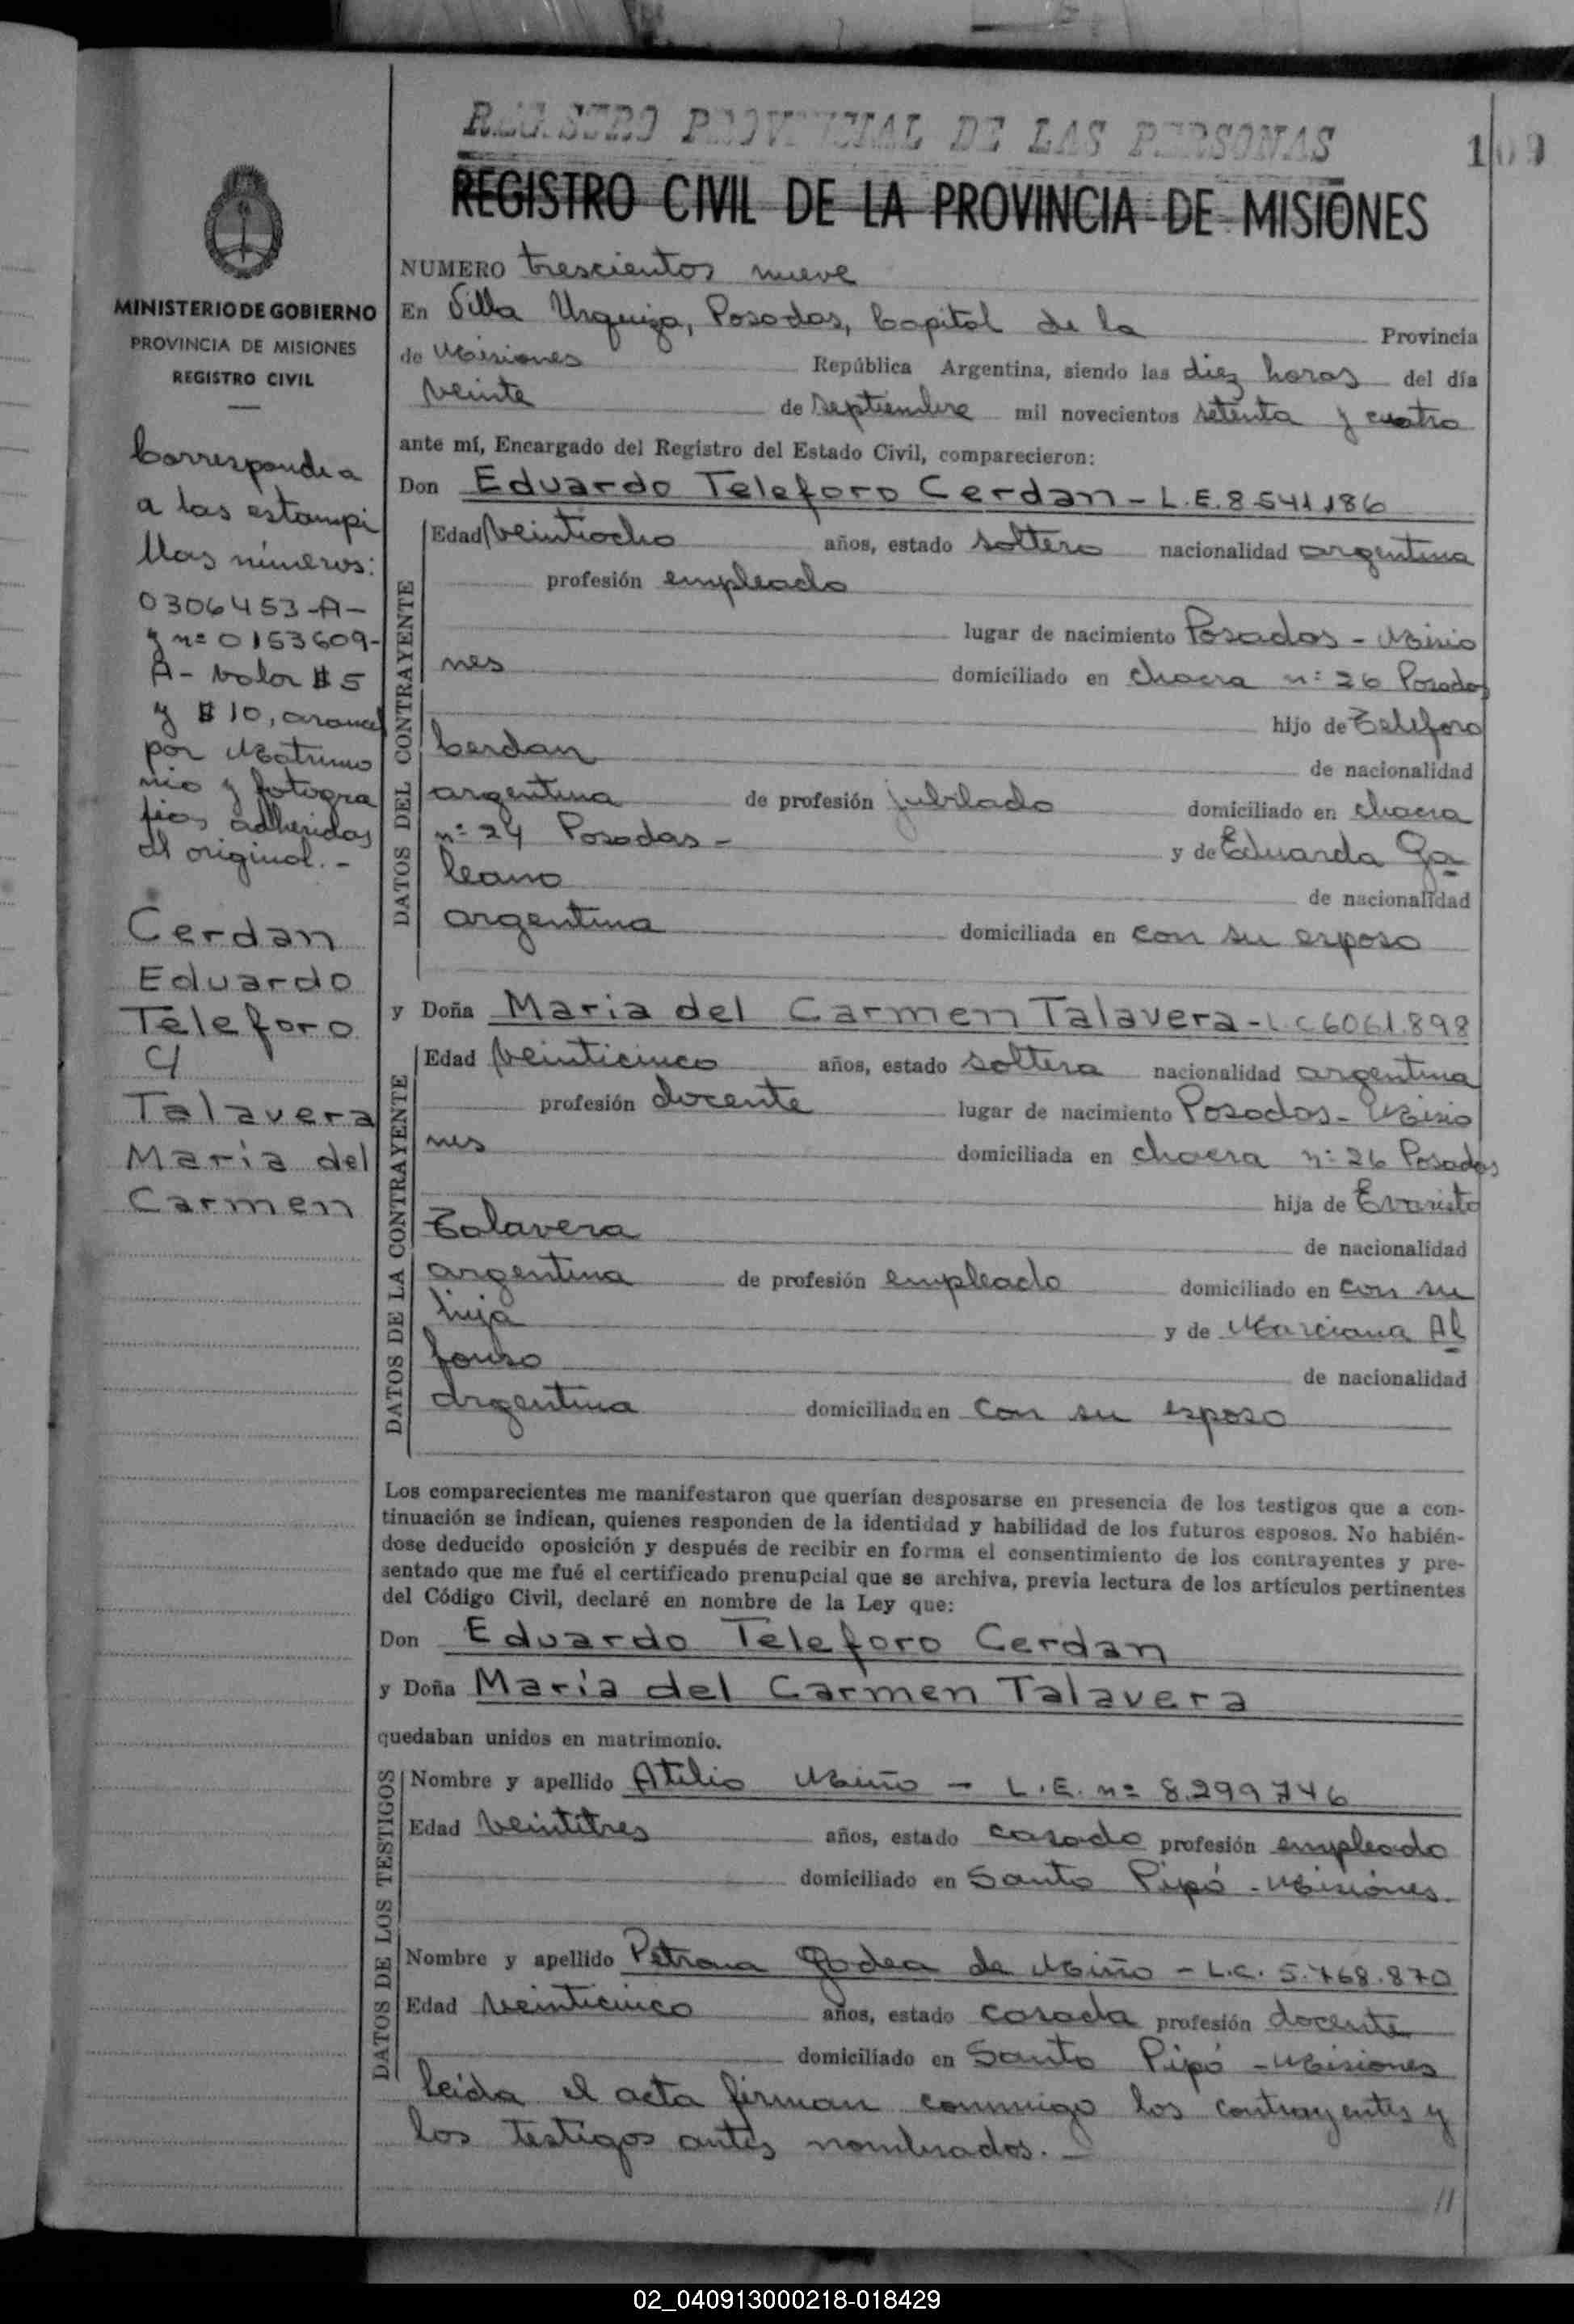 REGISTRO PROVINCIAL DE LAS PERSONAS
109
REGISTRO CIVIL DE LA PROVINCIA DE MISIONES
MINISTERIO DE GOBIERNO
PROVINCIA DE MISIONES
REGISTRO CIVIL
Corresponde a
a las estampi
llas números:
0306453-A-
y nº 0153609-
A- valor $ 5
y $ 10, arancel
por Matrimo
nio y fotogra
fías adheridas
al original.-
Cerdan
Eduardo
Teleforo
C/
Talavera
María del
Carmen
NUMERO trescientos nueve
En Villa Urquiza, Posadas, Capital de la Provincia
de Misiones República Argentina, siendo las diez horas del día
veinte de Septiembre mil novecientos setenta y cuatro
ante mí, Encargado del Registro del Estado Civil, comparecieron:
Don Eduardo Teleforo Cerdan - L.E. 8.541.186
DATOS DEL CONTRAYENTE
Edad veintiocho años, estado soltero nacionalidad argentina
profesión empleado
lugar de nacimiento Posadas - Misio
nes domiciliado en chacra nº 26 Posadas
hijo de Teleforo
Cerdan de nacionalidad
argentina de profesión jubilado domiciliado en chacra
nº 24 Posadas - y de Eduarda Ga
leano de nacionalidad
argentina domiciliada en con su esposo
y Doña Maria del Carmen Talavera - L.C 6061.898
DATOS DE LA CONTRAYENTE
Edad veinticinco años, estado soltera nacionalidad argentina
profesión docente lugar de nacimiento Posadas - Misio
nes domiciliada en chacra nº 26 Posadas
hija de Evaristo
Talavera de nacionalidad
argentina de profesión empleado domiciliado en con su
hija y de Marciana Al
fonso de nacionalidad
argentina domiciliada en con su esposo
Los comparecientes me manifestaron que querían desposarse en presencia de los testigos que a con-
tinuación se indican, quienes responden de la identidad y habilidad de los futuros esposos. No habién-
dose deducido oposición y después de recibir en forma el consentimiento de los contrayentes y pre-
sentado que me fué el certificado prenupcial que se archiva, previa lectura de los artículos pertinentes
del Código Civil, declaré en nombre de la Ley que:
Don Eduardo Teleforo Cerdan
y Doña María del Carmen Talavera
quedaban unidos en matrimonio.
DATOS DE LOS TESTIGOS
Nombre y apellido Atilio Miño - L.E. nº 8.299.746
Edad veintitres años, estado casado profesión empleado
domiciliado en Santo Pipó - Misiones.
Nombre y apellido Petrona Godea de Miño - L.C. 5.768.870
Edad veinticinco años, estado casada profesión docente
domiciliado en Santo Pipó - Misiones
leída el acta firman conmigo los contrayentes y
los testigos antes nombrados. -
//
02_040913000218-018429